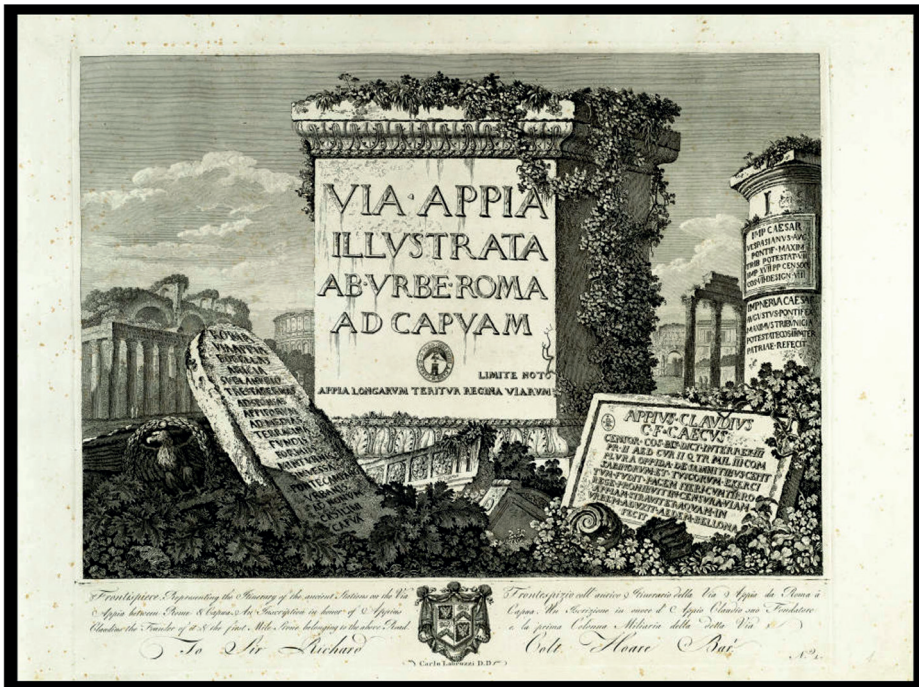 VIA·APPIA
ILLVSTRATA
AB·VRBE·ROMA
AD CAPVAM
LIMITE NOTO
APPIA LONGARVM TERITVR REGINA VIARVM
I
IMP CAESAR
VESPASIANVS·AVG
PONTIF·MAXIM
TRIB POTESTAT·VII
IMP XVII PP CENSOR
COS VII DESIGN VIII
IMP NERVA CAESAR
AVGVSTVS·PONTIFEX
MAXIMVS TRIBVNICIA
POTESTATE COS III PATER
PATRIAE·REFECIT
BOVILL
ARICIA
SVBLANVBIO
TRES TABERNAS
APPIFORVM
FVNDIS
CAPVA
APPIVS·CLAVDIVS
C·F·CAECVS
CENSOR·COS·BIS·DICT·INTERREX·III
PR·II·AED CVR II Q TR MIL III COM
PLVRA OPPIDA·DE·SAMNITIBVS CEPIT
SABINORVM·ET·TVSCORVM·EXERCI
TVM FVDIT·PACEM FIERI CVM
REGE PROHIBVIT IN CENSVRA VIAM
APPIAM STRAVIT ET AQVAM·IN
VRBEM·ADVXIT·AEDEM·BELLONAE
FECIT
Frontispiece, Representing the Itinerary of the ancient Stations on the Via
Appia between Rome & Capua, An Inscription in honor of Appius
Claudius the Founder of it & the first Mile Stone, belonging to the above Road.
Frontispizio coll' antico Itinerario della Via Appia da Roma à
Capua. Un Iscrizione in onore d' Appio Claudio suo Fondatore
e la prima Colonna Miliaria della detta Via.
To Sir Richard Colt Hoare Bar.t
Carlo Labruzzi D.D.